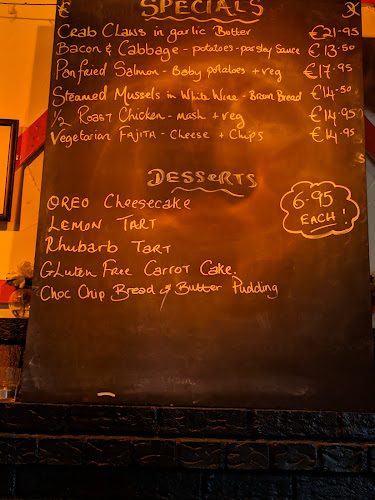 SPECIALS
Crab Claws in garlic Butter €21.95
Bacon & Cabbage - potatoes - parsley Sauce €13.50
Panfried Salmon - Baby potatoes + veg €17.95
Steamed Mussels in White Wine - Brown Bread €14.50
1/2 Roast Chicken - mash + veg €14.95
Vegetarian Fajita - Cheese + Chips €14.95
Desserts
OREO Cheesecake
Lemon Tart
Rhubarb Tart
Gluten Free Carrot Cake.
Choc Chip Bread & Butter Pudding
6.95
EACH!